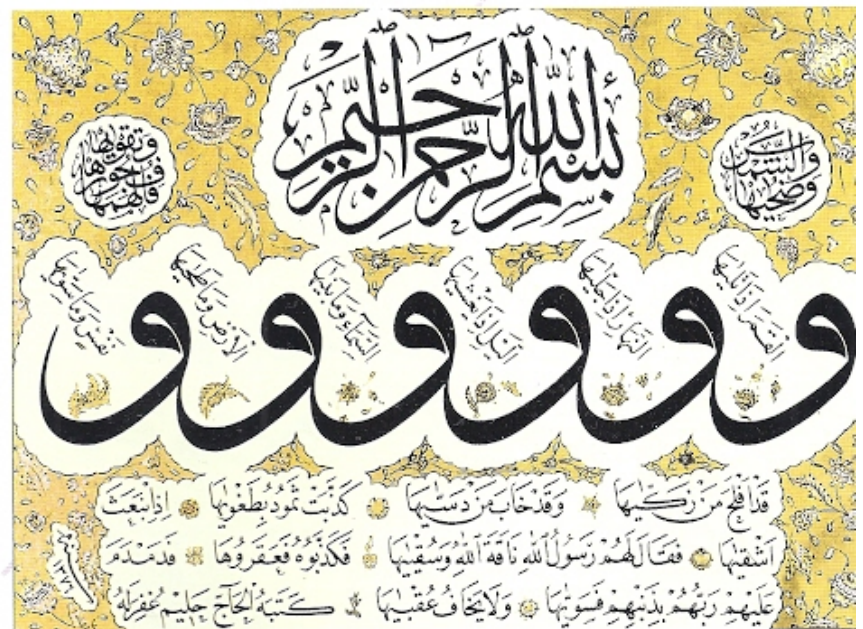 بسم الله الرحمن الرحيم
والشمس وضحيها
و القمر اذا تليها
و النهار اذا جليها
و اليل اذا يغشيها
و السماء وما بنيها
و الارض وما طحيها
و نفس وما سويها
فالهمها فجورها وتقويها
قد افلح من زكيها وقد خاب من دسيها كذبت ثمود بطغويها اذ انبعث
اشقيها فقال لهم رسول الله ناقة الله وسقييها فكذبوه فعقروها فدمدم
عليهم ربهم بذنبهم فسويها ولا يخاف عقبيها كتبه الحاج حليم غفر له